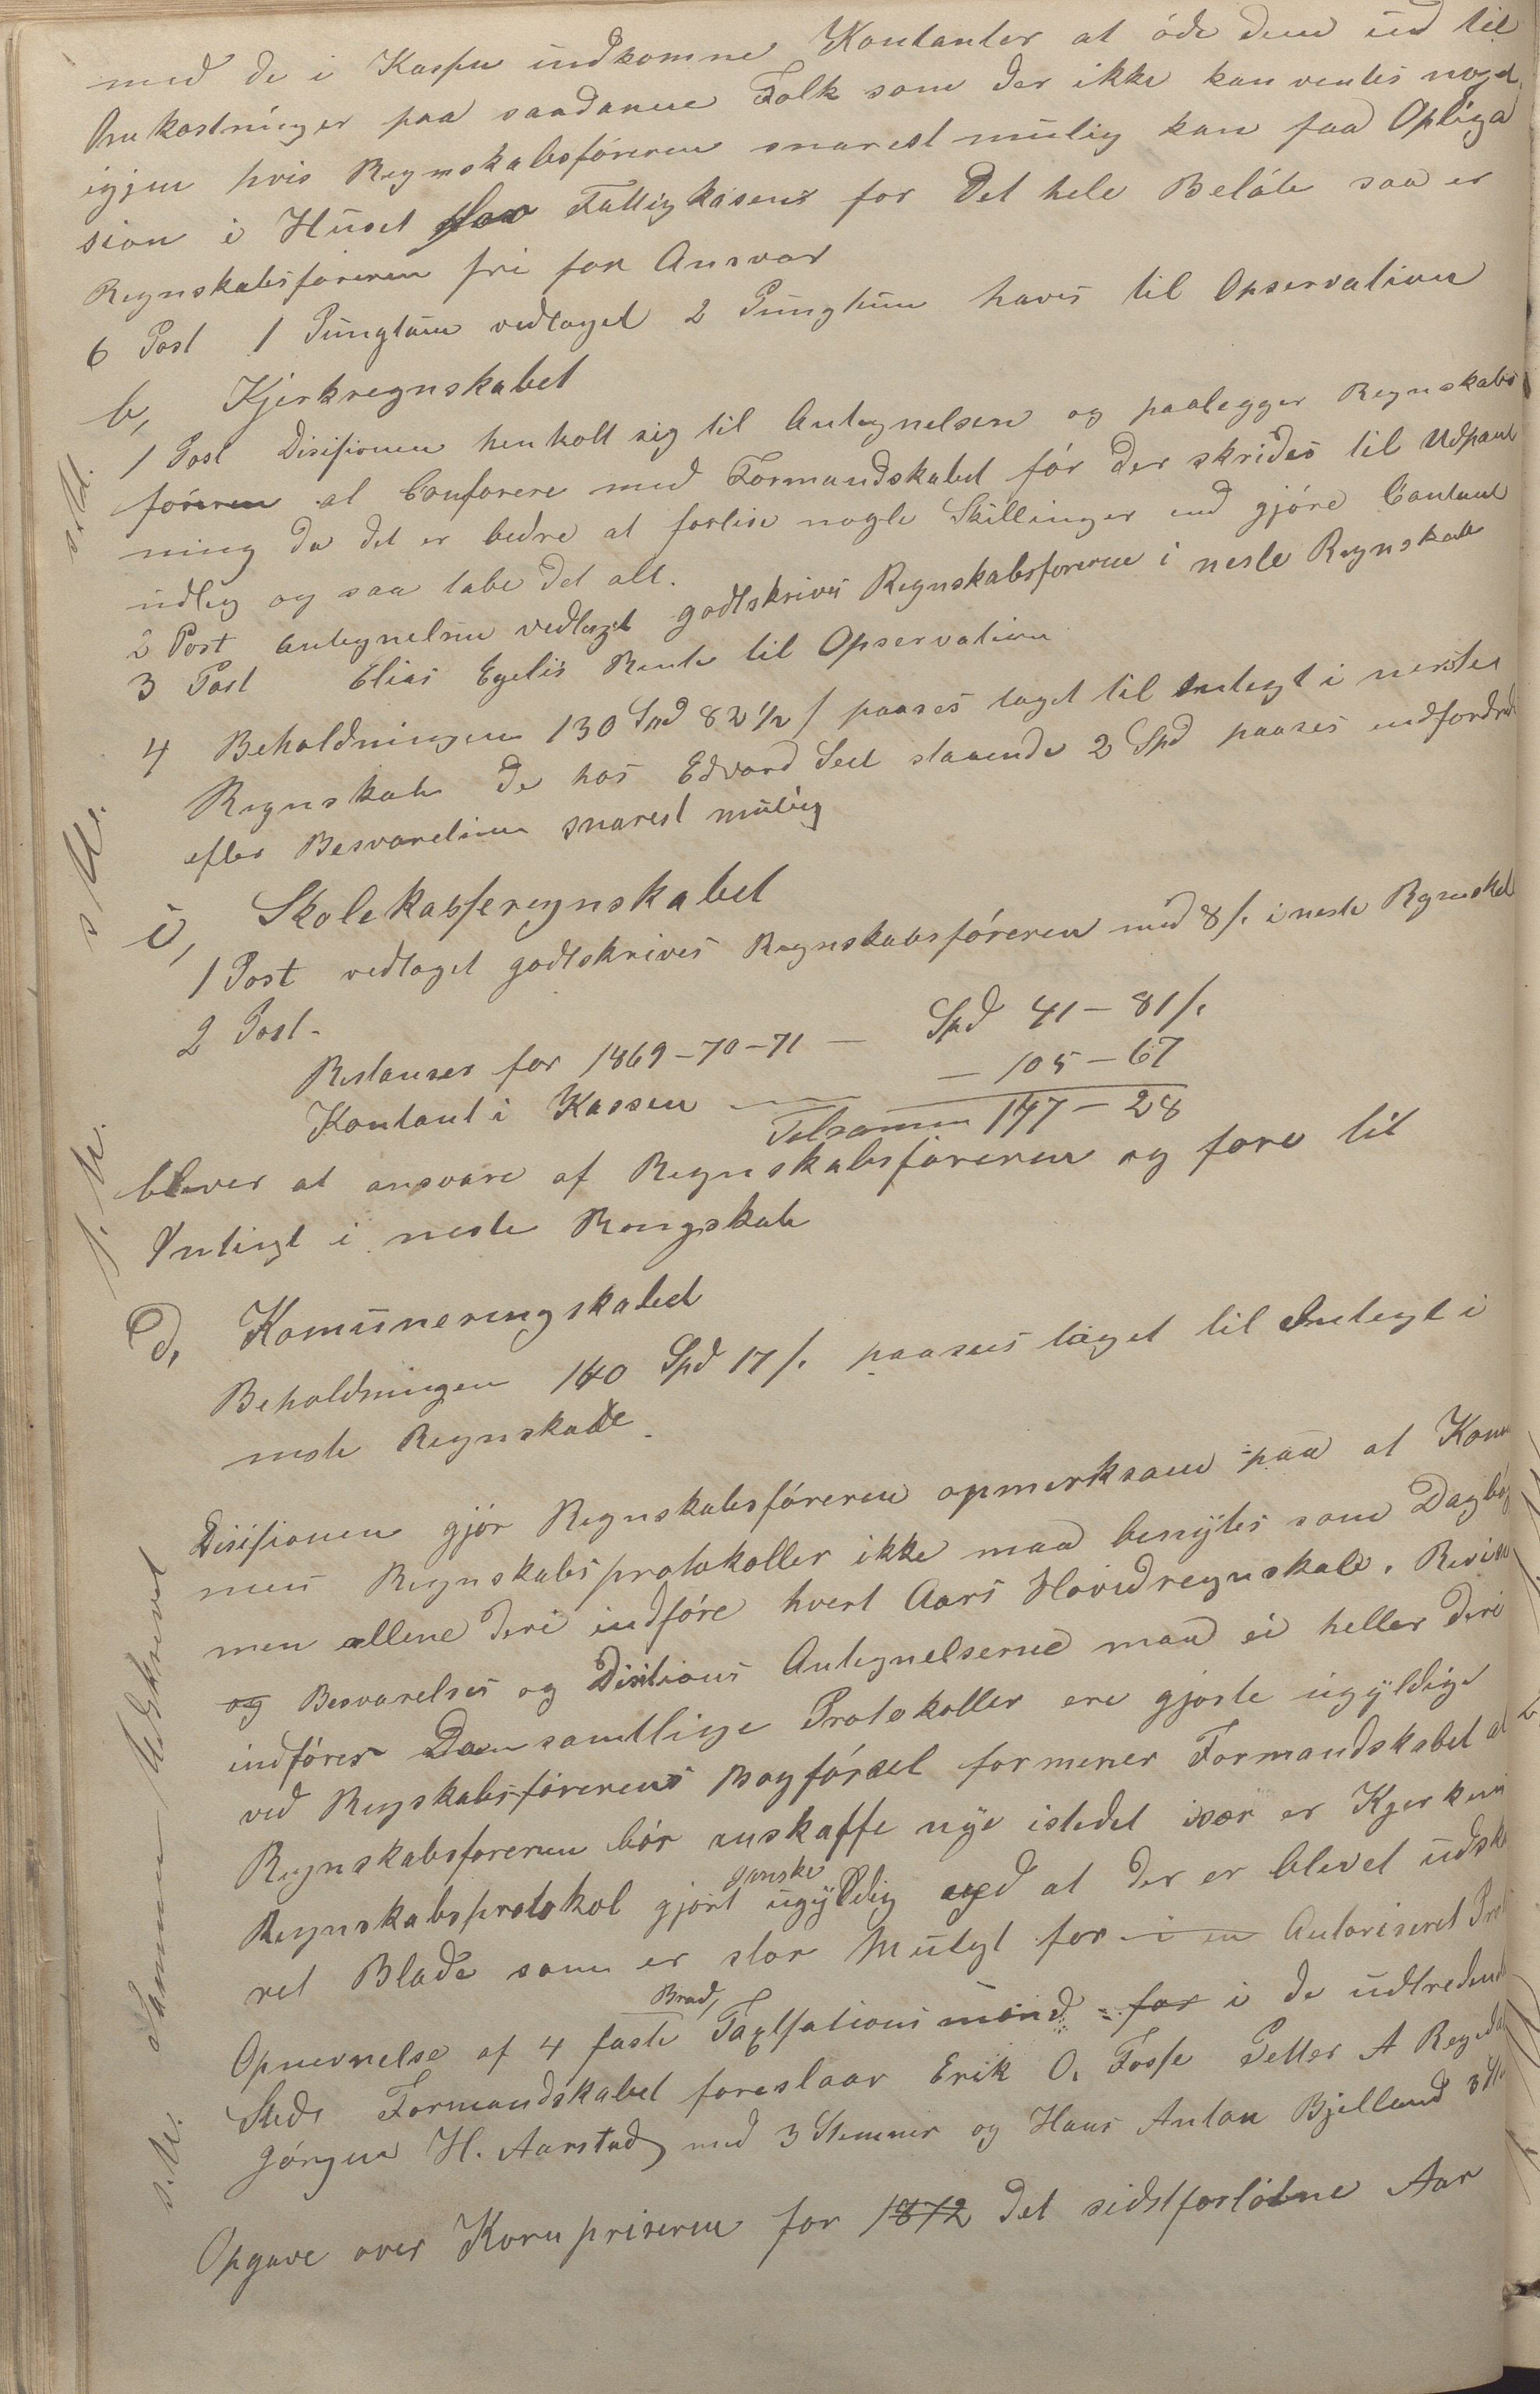 med de i Kassen indkomne Kontanter at óde dem ud til
Omkostninger paa saadanne Folk som der ikke kan ventes noget
igjen hvis Regnskabsföreren snarest mulig kan faa Obliga
sion i Huset for Fattigkasens for det hele Belöb saa er
Regnskabsföreren fri for Ansvar
6 Post 1 Pungtum vedtaget 2 Pungtum haves til Opservation
b, Kjerkregnskabet
1 Post Disisionen henholt sig til Antegnelsen og paalegger Regnskabs
föreren at Conferere med Formandskabet för der skrides til Udpant
ning da det er bedre at forlise nogle Skillinger end gjöre Contant
udleg og saa tabe det alt.
2 Post antegnelsen vedtaget godtskrives Regnskabsföreren i neste Regnskab
3 Post Elias Egelis Rente til Opservation
4 Beholdningen 130 Spd 82 1/2 / paases taget til Integt i neste
Regnskab de hos Edvard Seet staaende 2 Spd paases indfordret
efter Besvarelsen snarest mulig
c, Skolekasseregnskabet
1 Post vedtaget godtskrives Regnskabsföreren med 8 /. i neste Regnskab
2 Post.
Restanser for 1869-70-71 — Spd 41 - 81 /.
Kontant i Kassen — — 105 - 67
Tilsamen 147 - 28
bliver at ansvare af Regnskabsföreren og före til
Integt i neste Rengskab
d, Komuneringskabet
Beholdningen 140 Spd 17 /. paases taget til Integt i
neste Regnskab.
Disisionen gjör Regnskabsföreren opmerksam paa at Komu
nens Regnskabsprotokoller ikke maa benyttes som Dagbog
men allene deri indföre hvert Aars Hovedregnskab. Revisions
og Besvarelses og Disitions Antegnelserne maa ei heller deri
indföres Da samtlige Protokoller ere gjorte ugyldige
ved Regskabsförerens Bogförsel formener Formandskabet at
Regnskabsföreren bör anskaffe nye istedet især er Kjerkens
ganske
Regnskabsprotokol gjort ugyldig ved at der er blevet udskaa
ret Blade som er stor Mulgt for i en Autoriseret Pro
Brand,
Opnevnelse af 4 faste Taxtsationsmænd for i de udtredende
Steds Formandskabet foreslaar Erik O. Fosse Petter A Regedal
Görgen H. Aarstad med 3 Stemmer og Hans Anton Bjelland 3 St
Opgave over Kornpriserne for 1872 det sidstforlöbne Aar
s. U.
s. U.
s. U.
s. U. Samme Udskrevet